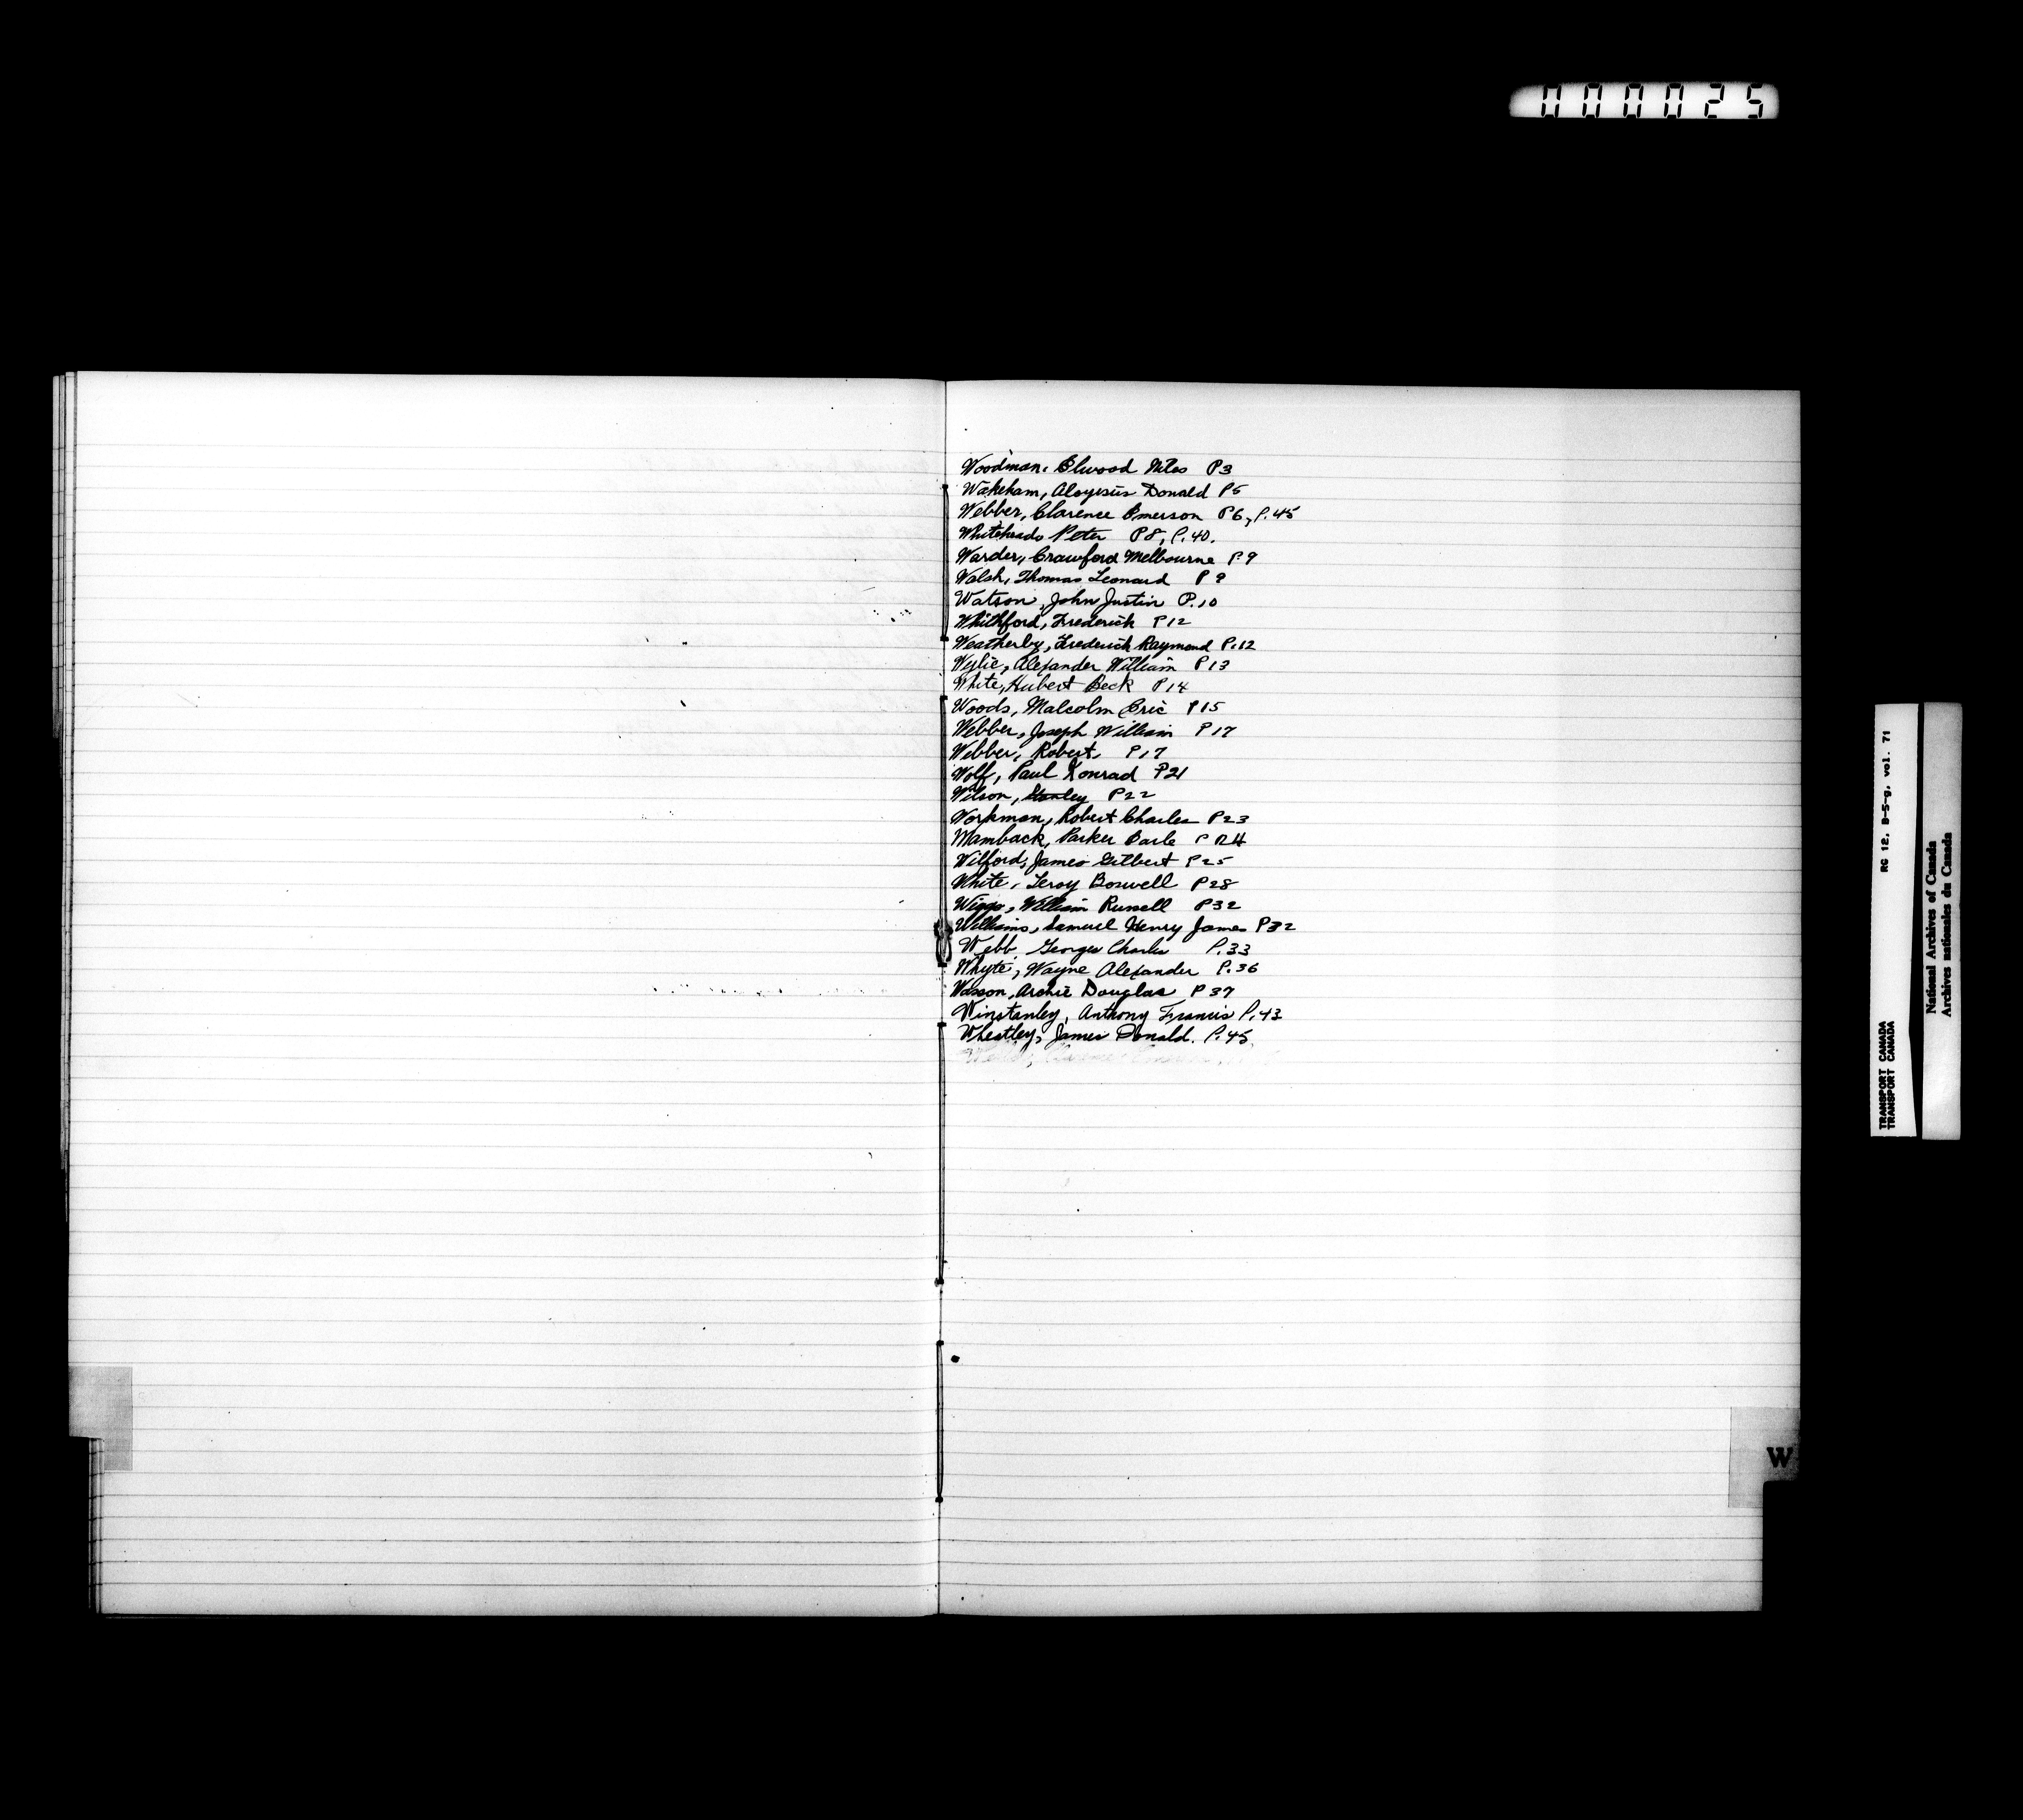 000025
Woodman, Elwood Niles P3
Wakeham, Aloyesius Donald P5
Webber, Clarence Emerson P6, P.45
Whitehead, Peter P8, P.40.
Warder, Crawford Melbourne P.9
Walsh, Thomas Leonard P 9
Watson, John Justin P.10
Whithford, Frederick P12
Weatherby, Frederick Raymond P.12
Wylie, Alexander William P13
White, Hubert Beck P14
Woods, Malcolm Eric P15
Webber, Joseph William P17
Webber, Robert, P17
Wolf, Paul Konrad P21
Wilson, Stanley P22
Workman, Robert Charles P23
Wamback, Parker Earle P
Wilford, James Gilbert P25
White, Leroy Boswell P28
Wiggs, William Russell P32
Williams, Samuel Henry James P32
Webb, Georges Charles P.33
Whyte, Wayne Alexander P.36
Wasson, Archie Douglas P 37
Winstanley, Anthony Francis P.43
Wheatley, James Donald. P.45
W
RG 12, B-5-g, vol. 71
TRANSPORT CANADA
TRANSPORT CANADA
National Archives of Canada
Archives nationales du Canada